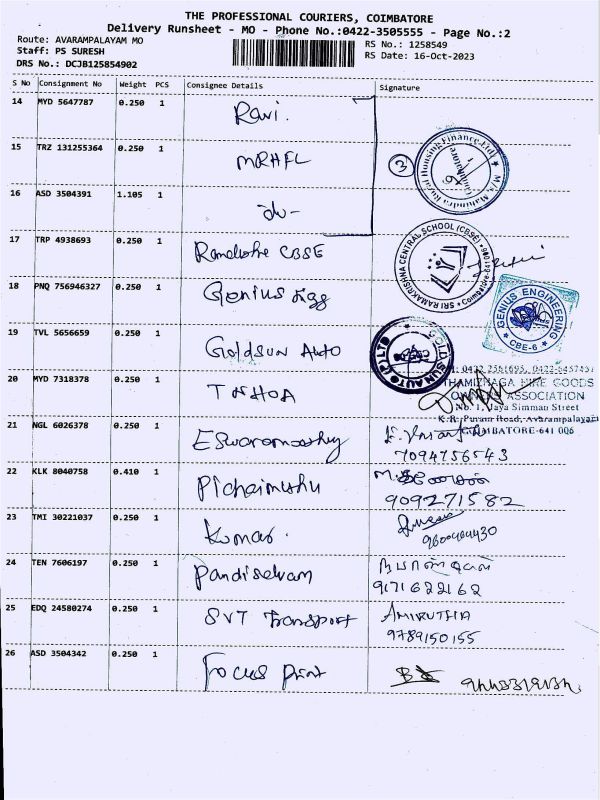 THE PROFESSIONAL COURIERS, COIMBATORE
Delivery Runsheet - MO - Phone No.:0422-3505555 - Page No.:2
Route: AVARAMPALAYAM MO
Staff: PS SURESH
DRS No.: DCJB125854902
RS No.: 1258549
RS Date: 16-Oct-2023
S No Consignment No Weight PCS Consignee Details Signature
14 MYD 5647787 0.250 1 Ravi.
15 TRZ 131255364 0.250 1 MRHFL
3
M/s. Mahindra Rural Housing Finance Ltd. Coimbatore
16 ASD 3504391 1.105 1
17 TRP 4938693 0.250 1 CBSE
SRI RAMAKRISHNA CENTRAL SCHOOL (CBSE)
18 PNQ 756946327 0.250 1 Genius
GENIUS ENGINEERING
CBE-6
19 TVL 5656659 0.250 1 Goldsun Auto
GOLDSUN AUTO (P) LTD
20 MYD 7318378 0.250 1 TNHOA
THAMIZHAGA HIRE GOODS
OWNERS ASSOCIATION
No. 1, Jaya Simman Street
K.R. Puram Road, Avarampalayam
COIMBATORE-641 006
21 NGL 6026378 0.250 1 Eswaramoorthy
7094756543
22 KLK 8040758 0.410 1 Pichaimuthu
9092771582
23 TMI 30221037 0.250 1 Kumar.
9600464430
24 TEN 7606197 0.250 1 Pandiselvam
9171622162
25 EDQ 24580274 0.250 1 SVT Transport AMIRUTHA
9789150155
26 ASD 3504342 0.250 1 Focus Print